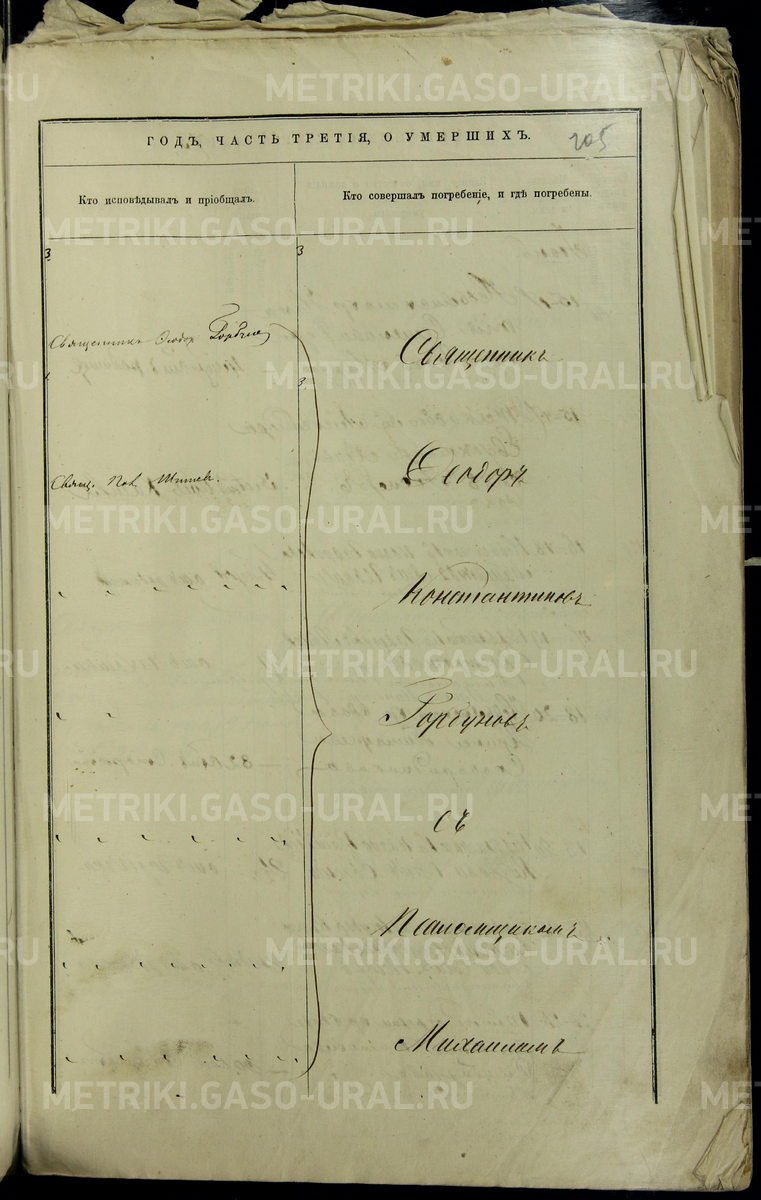 ГОДЪ, ЧАСТЬ ТРЕТІЯ, О УМЕРШИХЪ.
205
Кто исповѣдывалъ и пріобщалъ.
Кто совершалъ погребеніе, и гдѣ погребены.
3
3
Священникъ Ѳеодор
Священникъ
3
Свящ. Пав.
Ѳеодоръ
Константиновъ
Горгуновъ
съ
Псаломщикомъ
Михаиломъ
METRIKI.GASO-URAL.RU